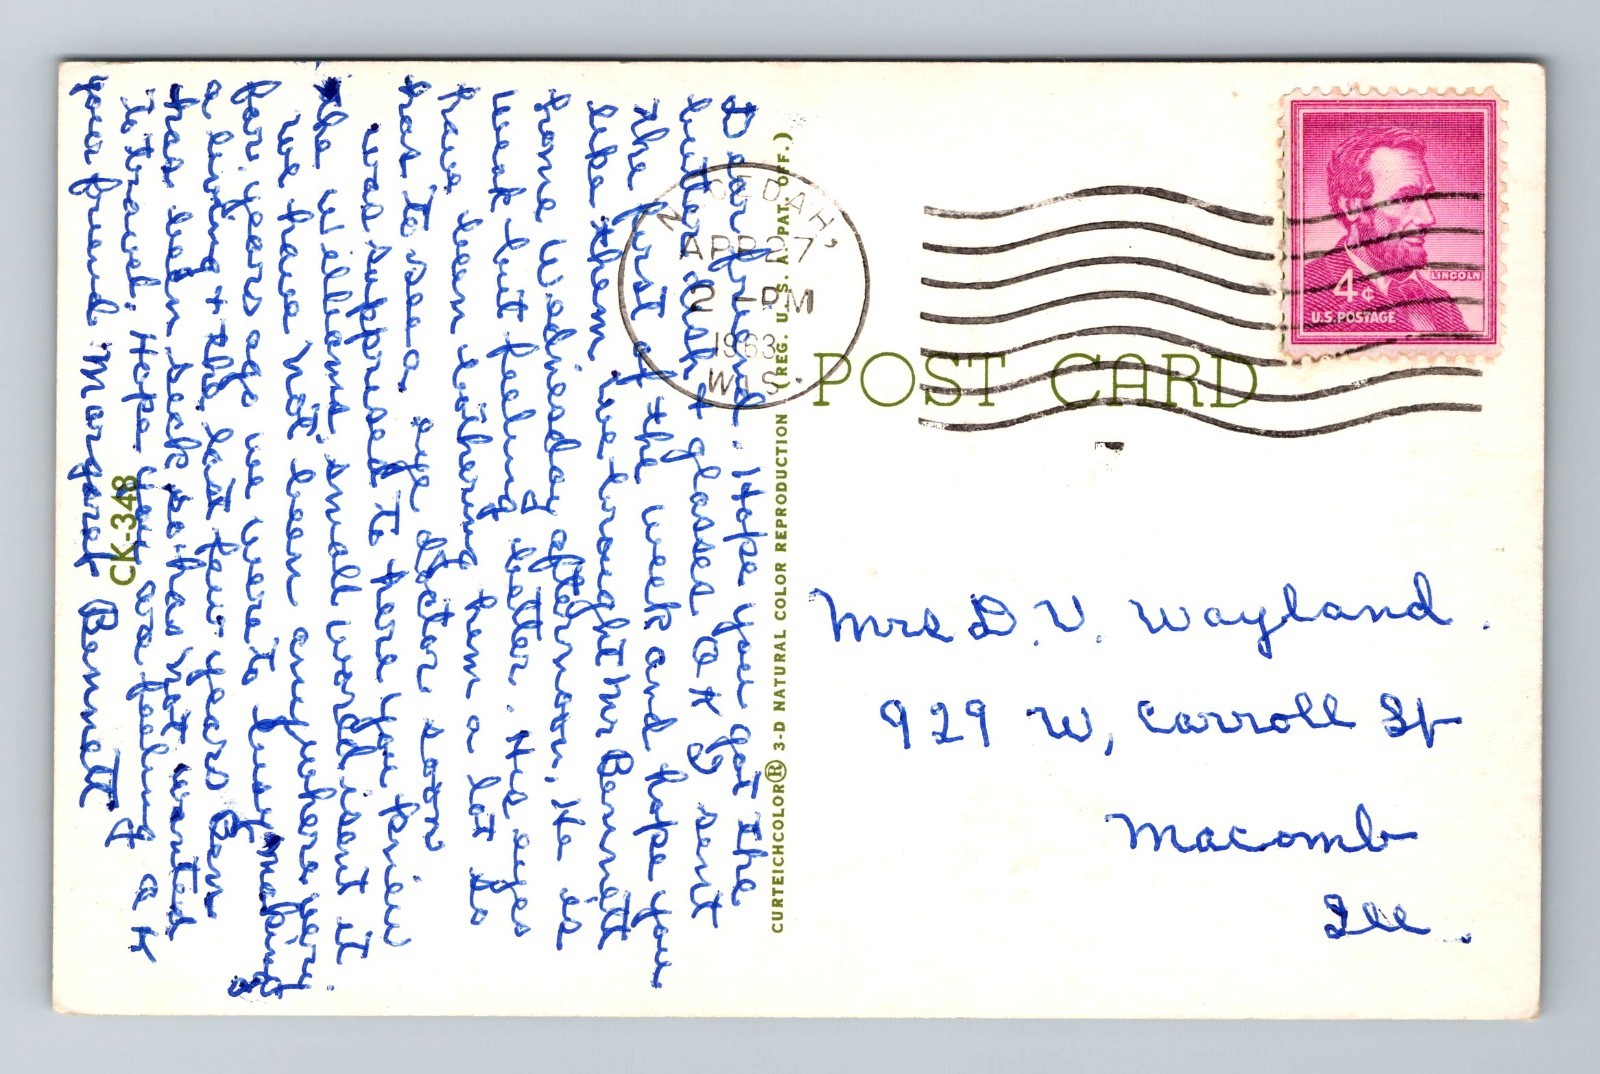 Dear friend. Hope you got the
butter dish + glasses OK I sent
the first of the week and hope you
like them. We brought Mr Bennett
home Wednesday afternoon. He is
weak but feeling better. His eyes
have been bothering him a lot so
has to see a eye doctor soon
was suppresed to here you knew
the Williams. small world isent it
we have not been anywhere very
far. years ago we were to busy making
a living + the last few years Ben
has been sick so has not wanted
to travel. Hope you are feeling OK
your friend Margaret Bennett
CK-348
CURTEICHCOLOR® 3-D NATURAL COLOR REPRODUCTION (REG. U.S.A. PAT. OFF.)
POST CARD
NECEDAH,
APR 27
2 - PM
1963
WIS.
4¢
LINCOLN
U.S. POSTAGE
Mrs D. V. Wayland.
929 W, Carroll St
Macomb
Ill.